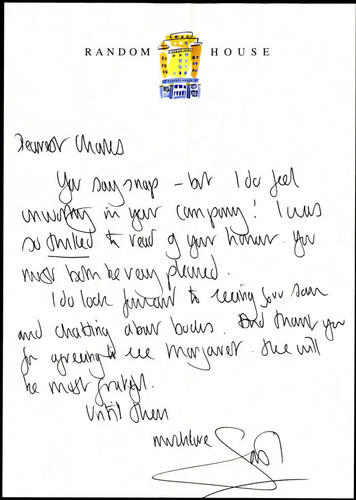 RANDOM HOUSE
Dearest Charles
You say snap - but I do feel
unworthy in your company! I was
so thrilled to read of your honour. You
must both be very pleased.
I do look forward to seeing you soon
and chatting about books. And thank you
for agreeing to see Margaret. She will
be most grateful.
Until then
much love